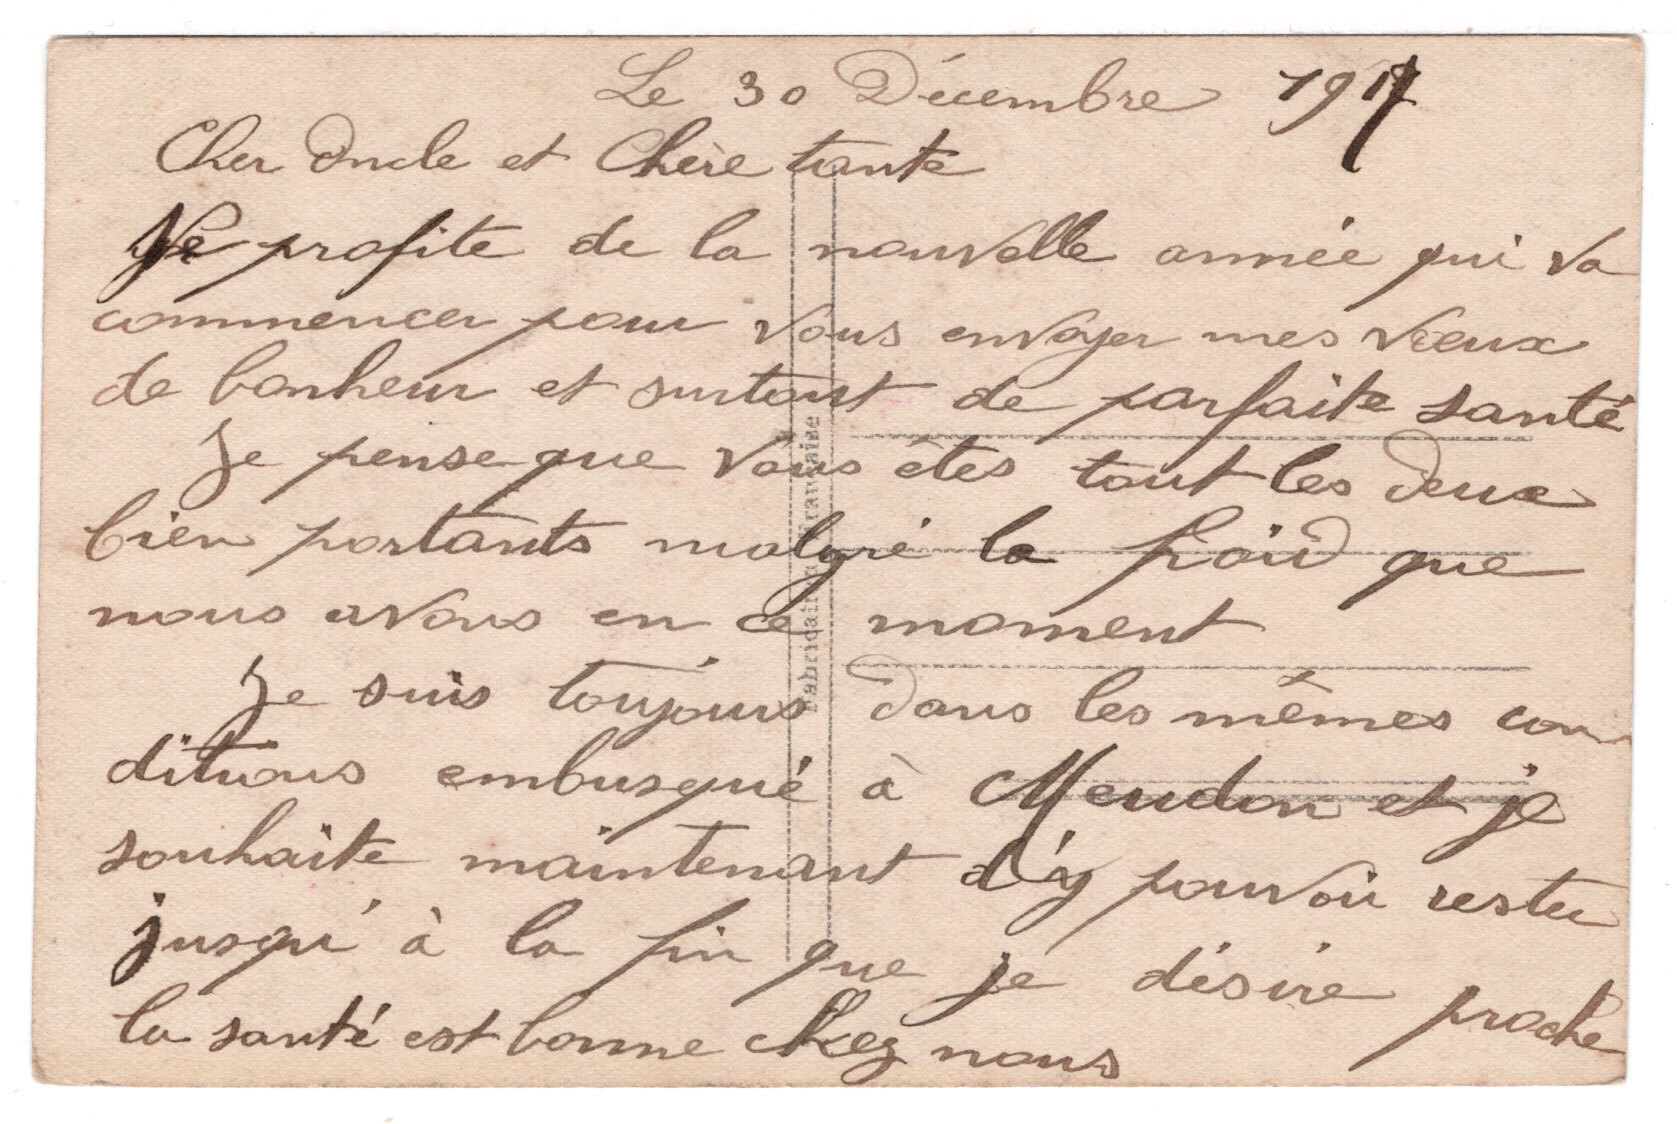 Le 30 Décembre 1917
Cher Oncle et Chère tante
Je profite de la nouvelle année qui va
commencer pour vous envoyer mes vœux
de bonheur et surtout de parfaite santé
Je pense que vous êtes tout les deux
bien portants malgré le froid que
nous avons en ce moment
Je suis toujours dans les mêmes con
ditions embusqué à Meudon et je
souhaite maintenant d'y pouvoir rester
jusqu'à la fin que je désire proche
la santé est bonne chez nous
Fabrication Française